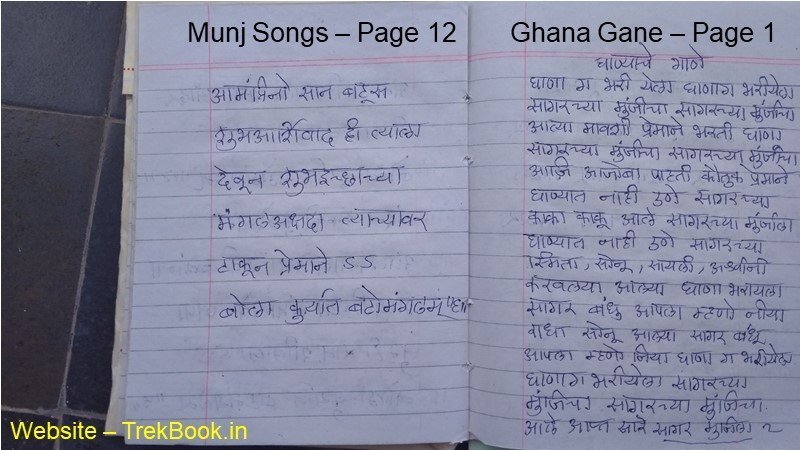 Munj Songs – Page 12
आमंत्रितो सान बटूस
शुभआर्शिवाद ही त्याला
देवून शुभइच्छाच्या
मंगलअक्षदा त्यांच्यावर
टाकून प्रेमाने ऽऽ
बोला कुर्यात बटोमंगलम्
Ghana Gane – Page 1
घाण्याचे गाणे
घाणा ग भरी येला घाणाग भरीयेला
सागरच्या मुंजीचा सागरच्या मुंजीचा
आत्या मावशी प्रेमाने भरती घाणा
सागरच्या मुंजीचा सागरच्या मुंजीचा
आजि आजोबा पाहती कौतुक प्रेमाने
घाण्यात नाही उणे सागरच्या
काका काकू आले सागरच्या मुंजीला
घाण्यात नाही उणे सागरच्या
स्मिता, सोनू, सायली, अश्विनी
करवल्या आल्या घाणा भरायला
सागर बंधु आपला म्हणे नीया
राधा सोनू आल्या सागर बंधू
आपला म्हणे निया घाणा ग भरीयेला
घाणाग भरीयेला सागरच्या
मुंजिचा सागरच्या मुंजिचा.
आले आप्त सारे सागर मुंजीला २
Website – TrekBook.in